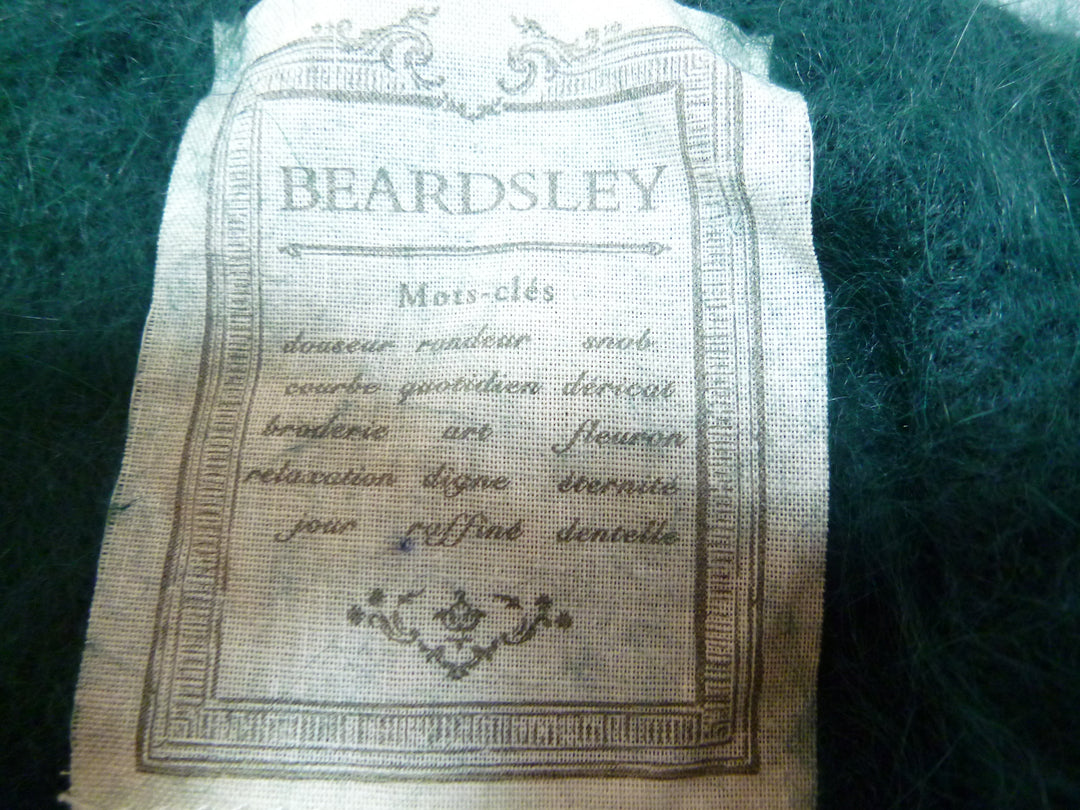 BEARDSLEY
Mots-clés
douseur rondeur snob
courbe quotidien déricat
broderie art fleuron
relaxation digne éternité
jour raffiné dentelle